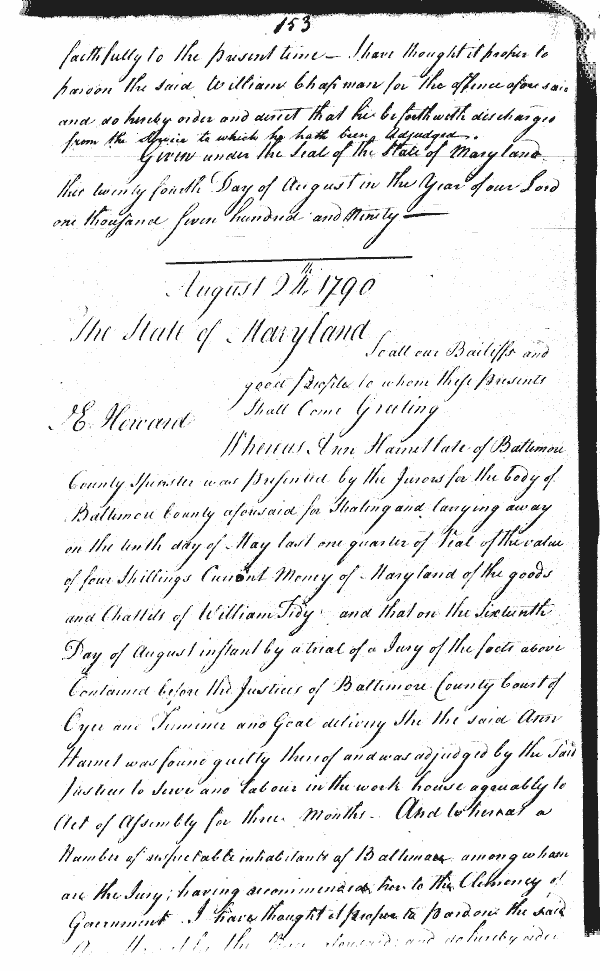 153
faithfully to the present time — I have thought it proper to
pardon the said William Chapman for the offence afore said
and do hereby order and direct that he be forthwith discharged
from the service to which he hath been adjudged.
Given under the Seal of the State of Maryland
this twenty fourth Day of August in the Year of our Lord
one thousand Seven hundred and Ninety —
August 24th 1790
The State of Maryland
To all our Bailiffs and
good People to whom these presents
Shall Come Greeting
J E Howard
Whereas Ann Hamel late of Baltimore
County Spinster was presented by the Jurors for the body of
Baltimore County aforesaid for Stealing and carrying away
on the tenth day of May last one quarter of Veal of the value
of four Shillings Current Money of Maryland of the goods
and Chattels of William Tidy and that on the Sixteenth
Day of August instant by a trial of a Jury of the facts above
Contained before the Justices of Baltimore County Court of
Oyer and Terminer and Goal delivery She the said Ann
Hamel was found guilty thereof and was adjudged by the Said
Justices to Serve and labour in the work house agreeably to
Act of Assembly for three Months. And whereas a
Number of respectable inhabitants of Baltimore among whom
are the Jury; having recommended her to the Clemency of
Government I have thought it proper to pardon the said
the and do hereby order